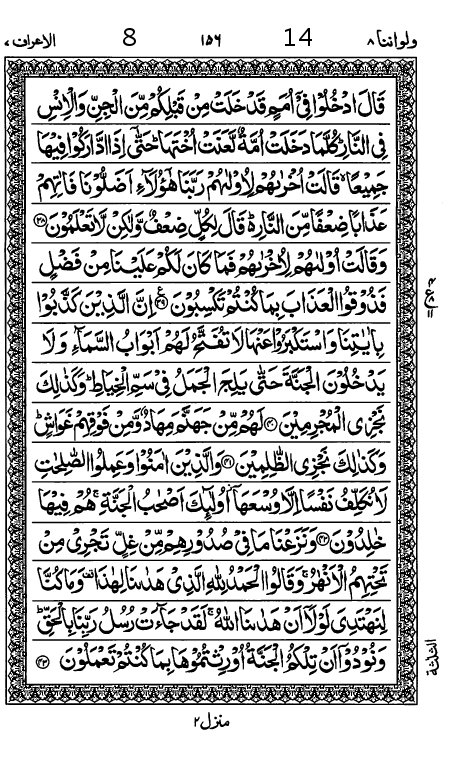 ولواننا ٨ 14 ١٥٦ 8 الاعراف ٧
قَالَ ادْخُلُوْا فِىْٓ اُمَمٍ قَدْ خَلَتْ مِنْ قَبْلِكُمْ مِّنَ الْجِنِّ وَالْاِنْسِ
فِى النَّارِ ؕ كُلَّمَا دَخَلَتْ اُمَّةٌ لَّعَنَتْ اُخْتَهَا ؕ حَتّٰٓى اِذَا ادَّارَكُوْا فِيْهَا
جَمِيْعًا ۙ قَالَتْ اُخْرٰىهُمْ لِاُوْلٰىهُمْ رَبَّنَا هٰٓؤُلَآءِ اَضَلُّوْنَا فَاٰتِهِمْ
عَذَابًا ضِعْفًا مِّنَ النَّارِ ؕ۬ قَالَ لِكُلٍّ ضِعْفٌ وَّلٰكِنْ لَّا تَعْلَمُوْنَ ﴿٣٨﴾
وَقَالَتْ اُوْلٰىهُمْ لِاُخْرٰىهُمْ فَمَا كَانَ لَكُمْ عَلَيْنَا مِنْ فَضْلٍ
فَذُوْقُوا الْعَذَابَ بِمَا كُنْتُمْ تَكْسِبُوْنَ ﴿٣٩﴾ اِنَّ الَّذِيْنَ كَذَّبُوْا
بِاٰيٰتِنَا وَاسْتَكْبَرُوْا عَنْهَا لَا تُفَتَّحُ لَهُمْ اَبْوَابُ السَّمَآءِ وَلَا
يَدْخُلُوْنَ الْجَنَّةَ حَتّٰى يَلِجَ الْجَمَلُ فِىْ سَمِّ الْخِيَاطِ ؕ وَكَذٰلِكَ
نَجْزِى الْمُجْرِمِيْنَ ﴿٤٠﴾ لَهُمْ مِّنْ جَهَنَّمَ مِهَادٌ وَّمِنْ فَوْقِهِمْ غَوَاشٍ ؕ
وَكَذٰلِكَ نَجْزِى الظّٰلِمِيْنَ ﴿٤١﴾ وَالَّذِيْنَ اٰمَنُوْا وَعَمِلُوا الصّٰلِحٰتِ
لَا نُكَلِّفُ نَفْسًا اِلَّا وُسْعَهَاۤ ۫ اُولٰٓئِكَ اَصْحٰبُ الْجَنَّةِ ۚ هُمْ فِيْهَا
خٰلِدُوْنَ ﴿٤٢﴾ وَنَزَعْنَا مَا فِىْ صُدُوْرِهِمْ مِّنْ غِلٍّ تَجْرِىْ مِنْ
تَحْتِهِمُ الْاَنْهٰرُ ۚ وَقَالُوا الْحَمْدُ لِلّٰهِ الَّذِىْ هَدٰىنَا لِهٰذَا ۟ وَمَا كُنَّا
لِنَهْتَدِىَ لَوْلَآ اَنْ هَدٰىنَا اللّٰهُ ۚ لَقَدْ جَآءَتْ رُسُلُ رَبِّنَا بِالْحَقِّ ؕ
وَنُوْدُوْٓا اَنْ تِلْكُمُ الْجَنَّةُ اُوْرِثْتُمُوْهَا بِمَا كُنْتُمْ تَعْمَلُوْنَ ﴿٤٣﴾
الثلثة
منزل ٢